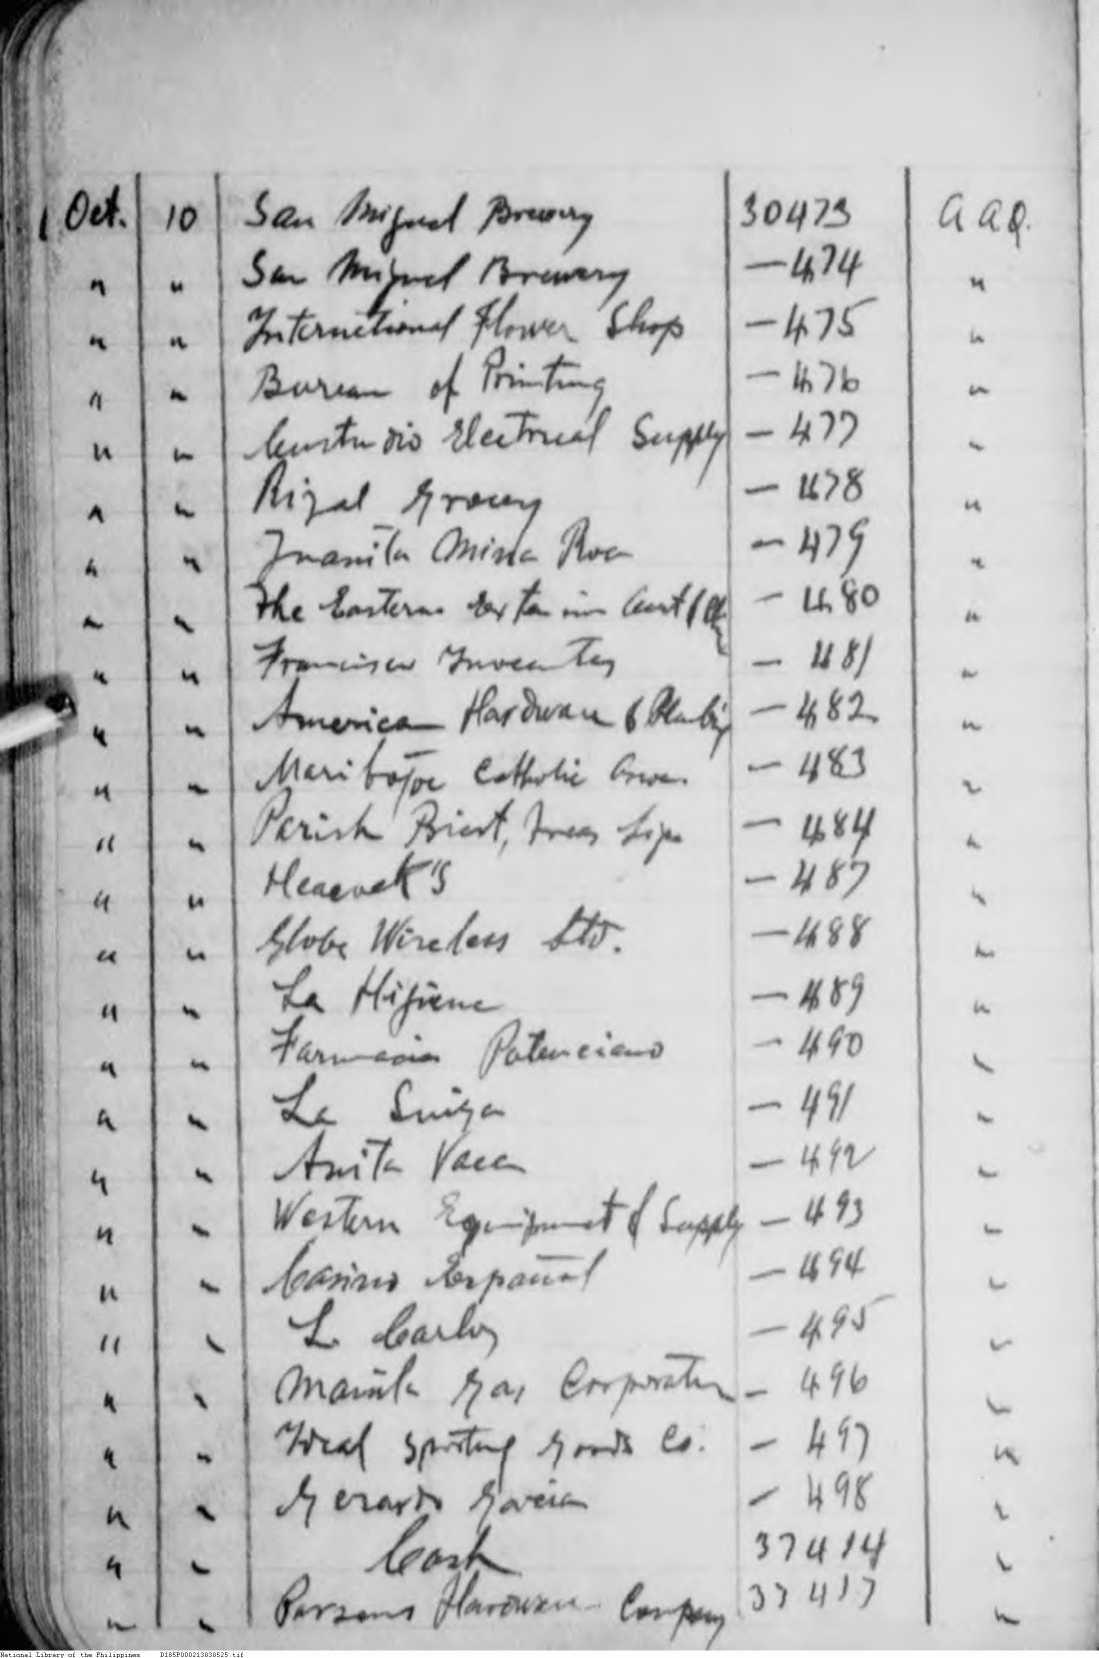 Oct. 10 San Miguel Brewery 30473 A A Q.
" " San Miguel Brewery — 474 "
" " International Flower Shop — 475 "
" " Bureau of Printing — 476 "
" " Custudio Electrical Supply — 477 "
" " Rizal Grocery — 478 "
" " Juanita Mina Roa — 479 "
" " The Eastern Extension Aust & — 480 "
" " Francisco — 481 "
" " American Hardware & Plumbing — 482 "
" " Maribojoc Catholic — 483 "
" " Parish Priest, Lipa — 484 "
" " Heacock's — 487 "
" " Globe Wireless Ltd. — 488 "
" " La Higiene — 489 "
" " Farmacia Potenciano — 490 "
" " La Suiza — 491 "
" " Anita Vaca — 492 "
" " Western Equipment & Supply — 493 "
" " Casino Español — 494 "
" " L. Carlos — 495 "
" " Manila Gas Corporation — 496 "
" " Ideal Sporting Goods Co. — 497 "
" " Gerardo Garcia — 498 "
" " Cash 37414 "
" " Parsons Hardware Company 37417 "
National Library of the Philippines D185P000213838525.tif